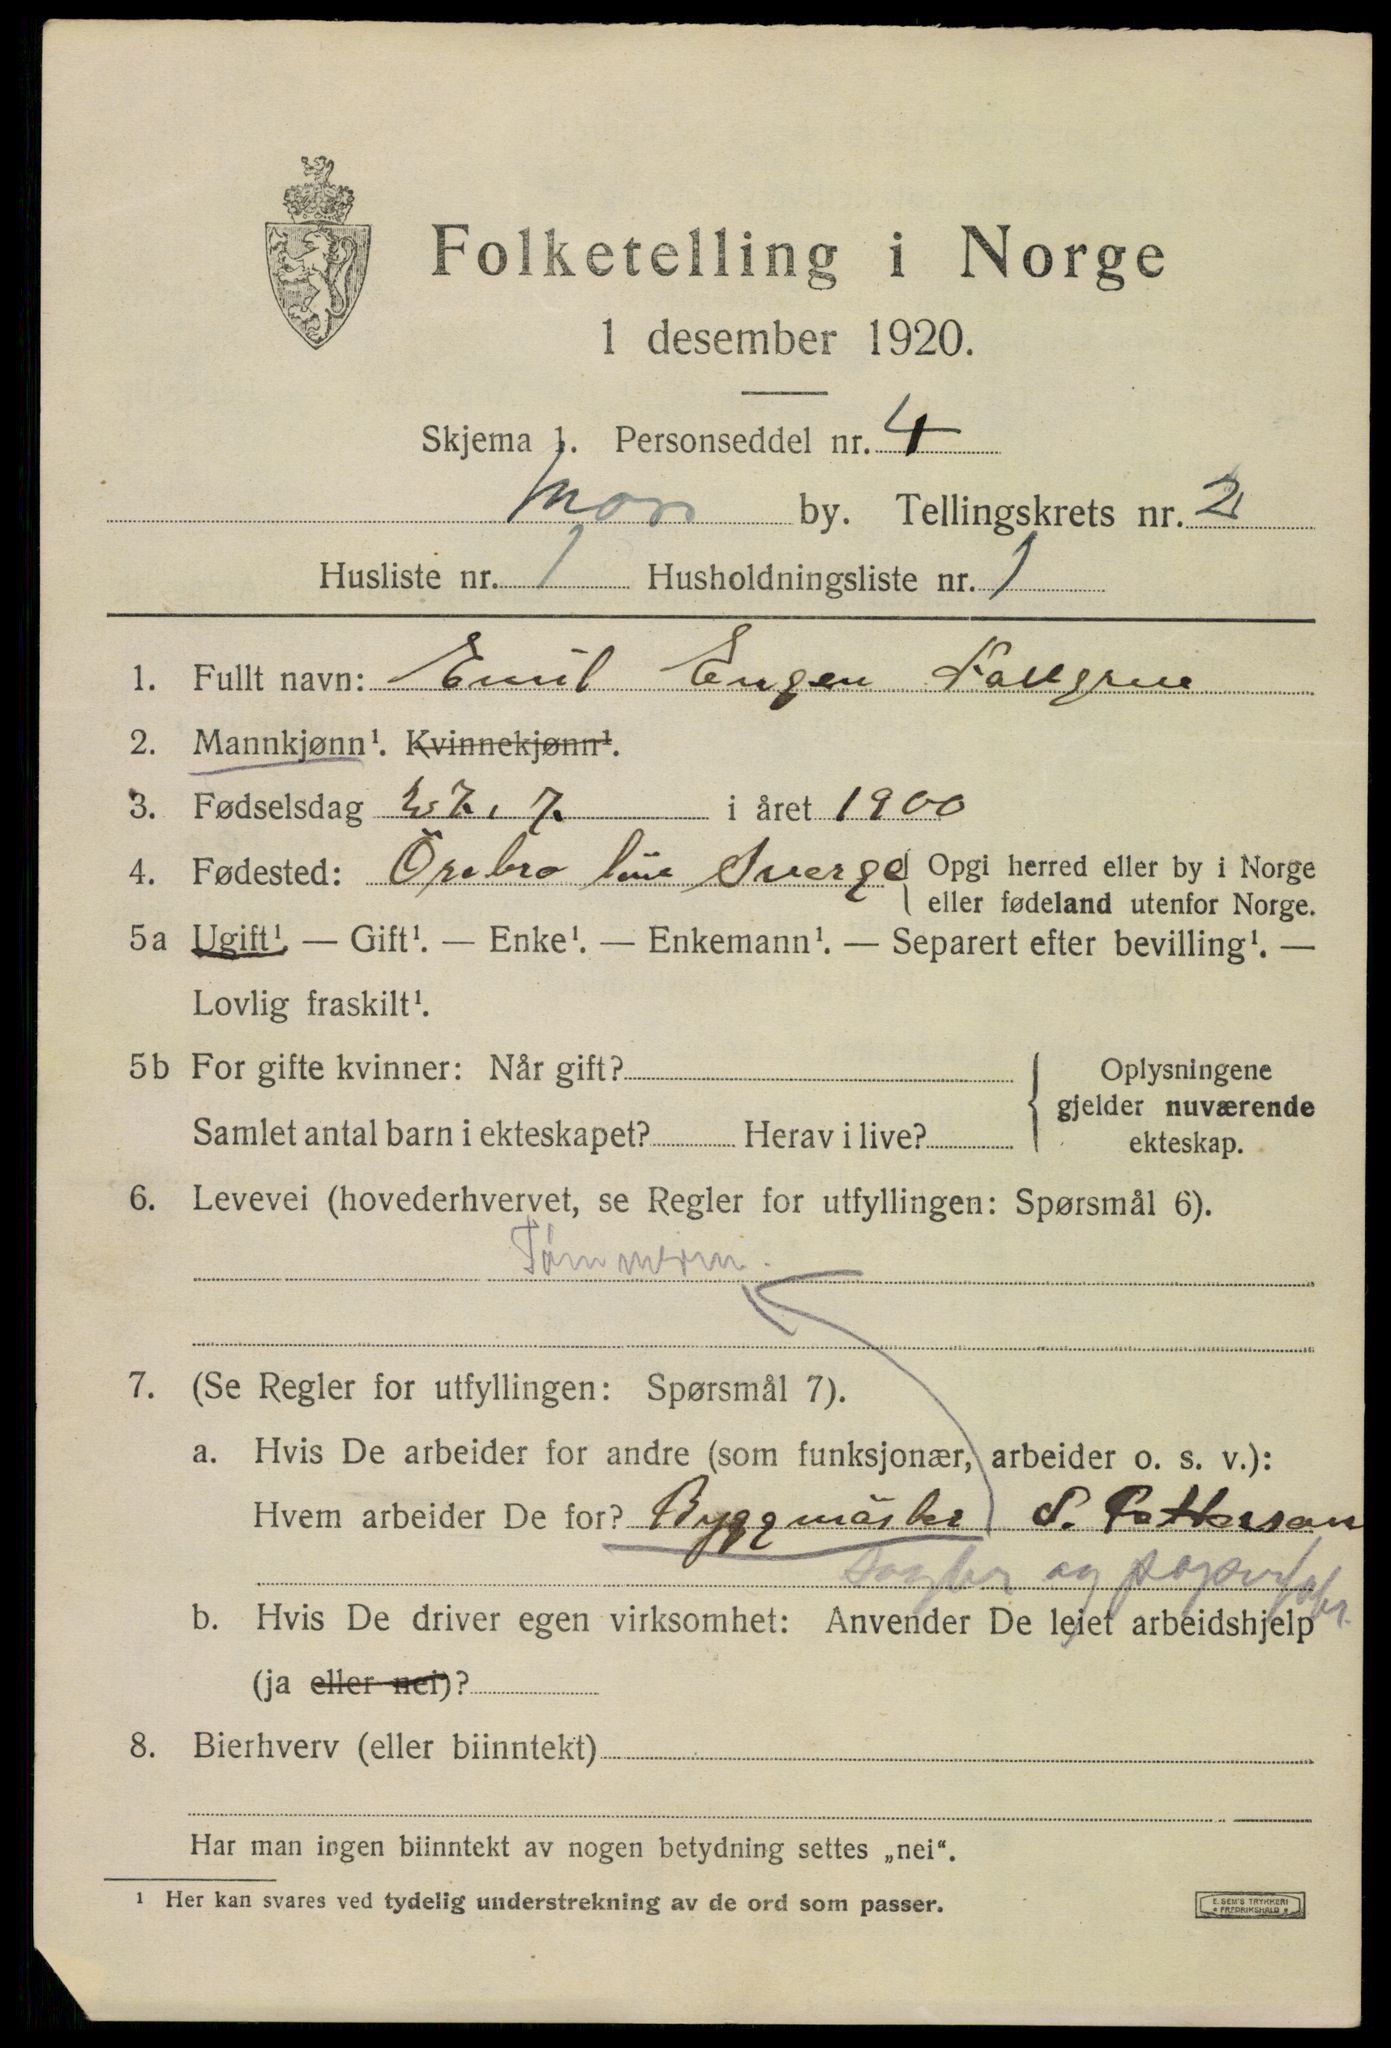 Folketelling i Norge
1 desember 1920.
Skjema 1. Personseddel nr. 4
Moss by. Tellingskrets nr. 2
Husliste nr. 1 Husholdningsliste nr. 1
1. Fullt navn: Emil Eugen
2. Mannkjønn¹. Kvinnekjønn¹.
3. Fødselsdag 7. i året 1900
4. Fødested: Örebro län Sverge Opgi herred eller by i Norge
eller fødeland utenfor Norge.
5a Ugift¹. — Gift¹. — Enke¹. — Enkemann¹. — Separert efter bevilling¹. —
Lovlig fraskilt¹.
5b For gifte kvinner: Når gift? Oplysningene
gjelder nuværende
Samlet antal barn i ekteskapet? Herav i live? ekteskap.
6. Levevei (hovederhvervet, se Regler for utfyllingen: Spørsmål 6).
Tømmerm.
7. (Se Regler for utfyllingen: Spørsmål 7).
a. Hvis De arbeider for andre (som funksjonær, arbeider o. s. v.):
Hvem arbeider De for? Byggmäster S. Petterson
og
b. Hvis De driver egen virksomhet: Anvender De leiet arbeidshjelp
(ja eller nei)?
8. Bierhverv (eller biinntekt)
Har man ingen biinntekt av nogen betydning settes „nei“.
¹ Her kan svares ved tydelig understrekning av de ord som passer.
E. SEM'S TRYKKERI
FREDRIKSHALD